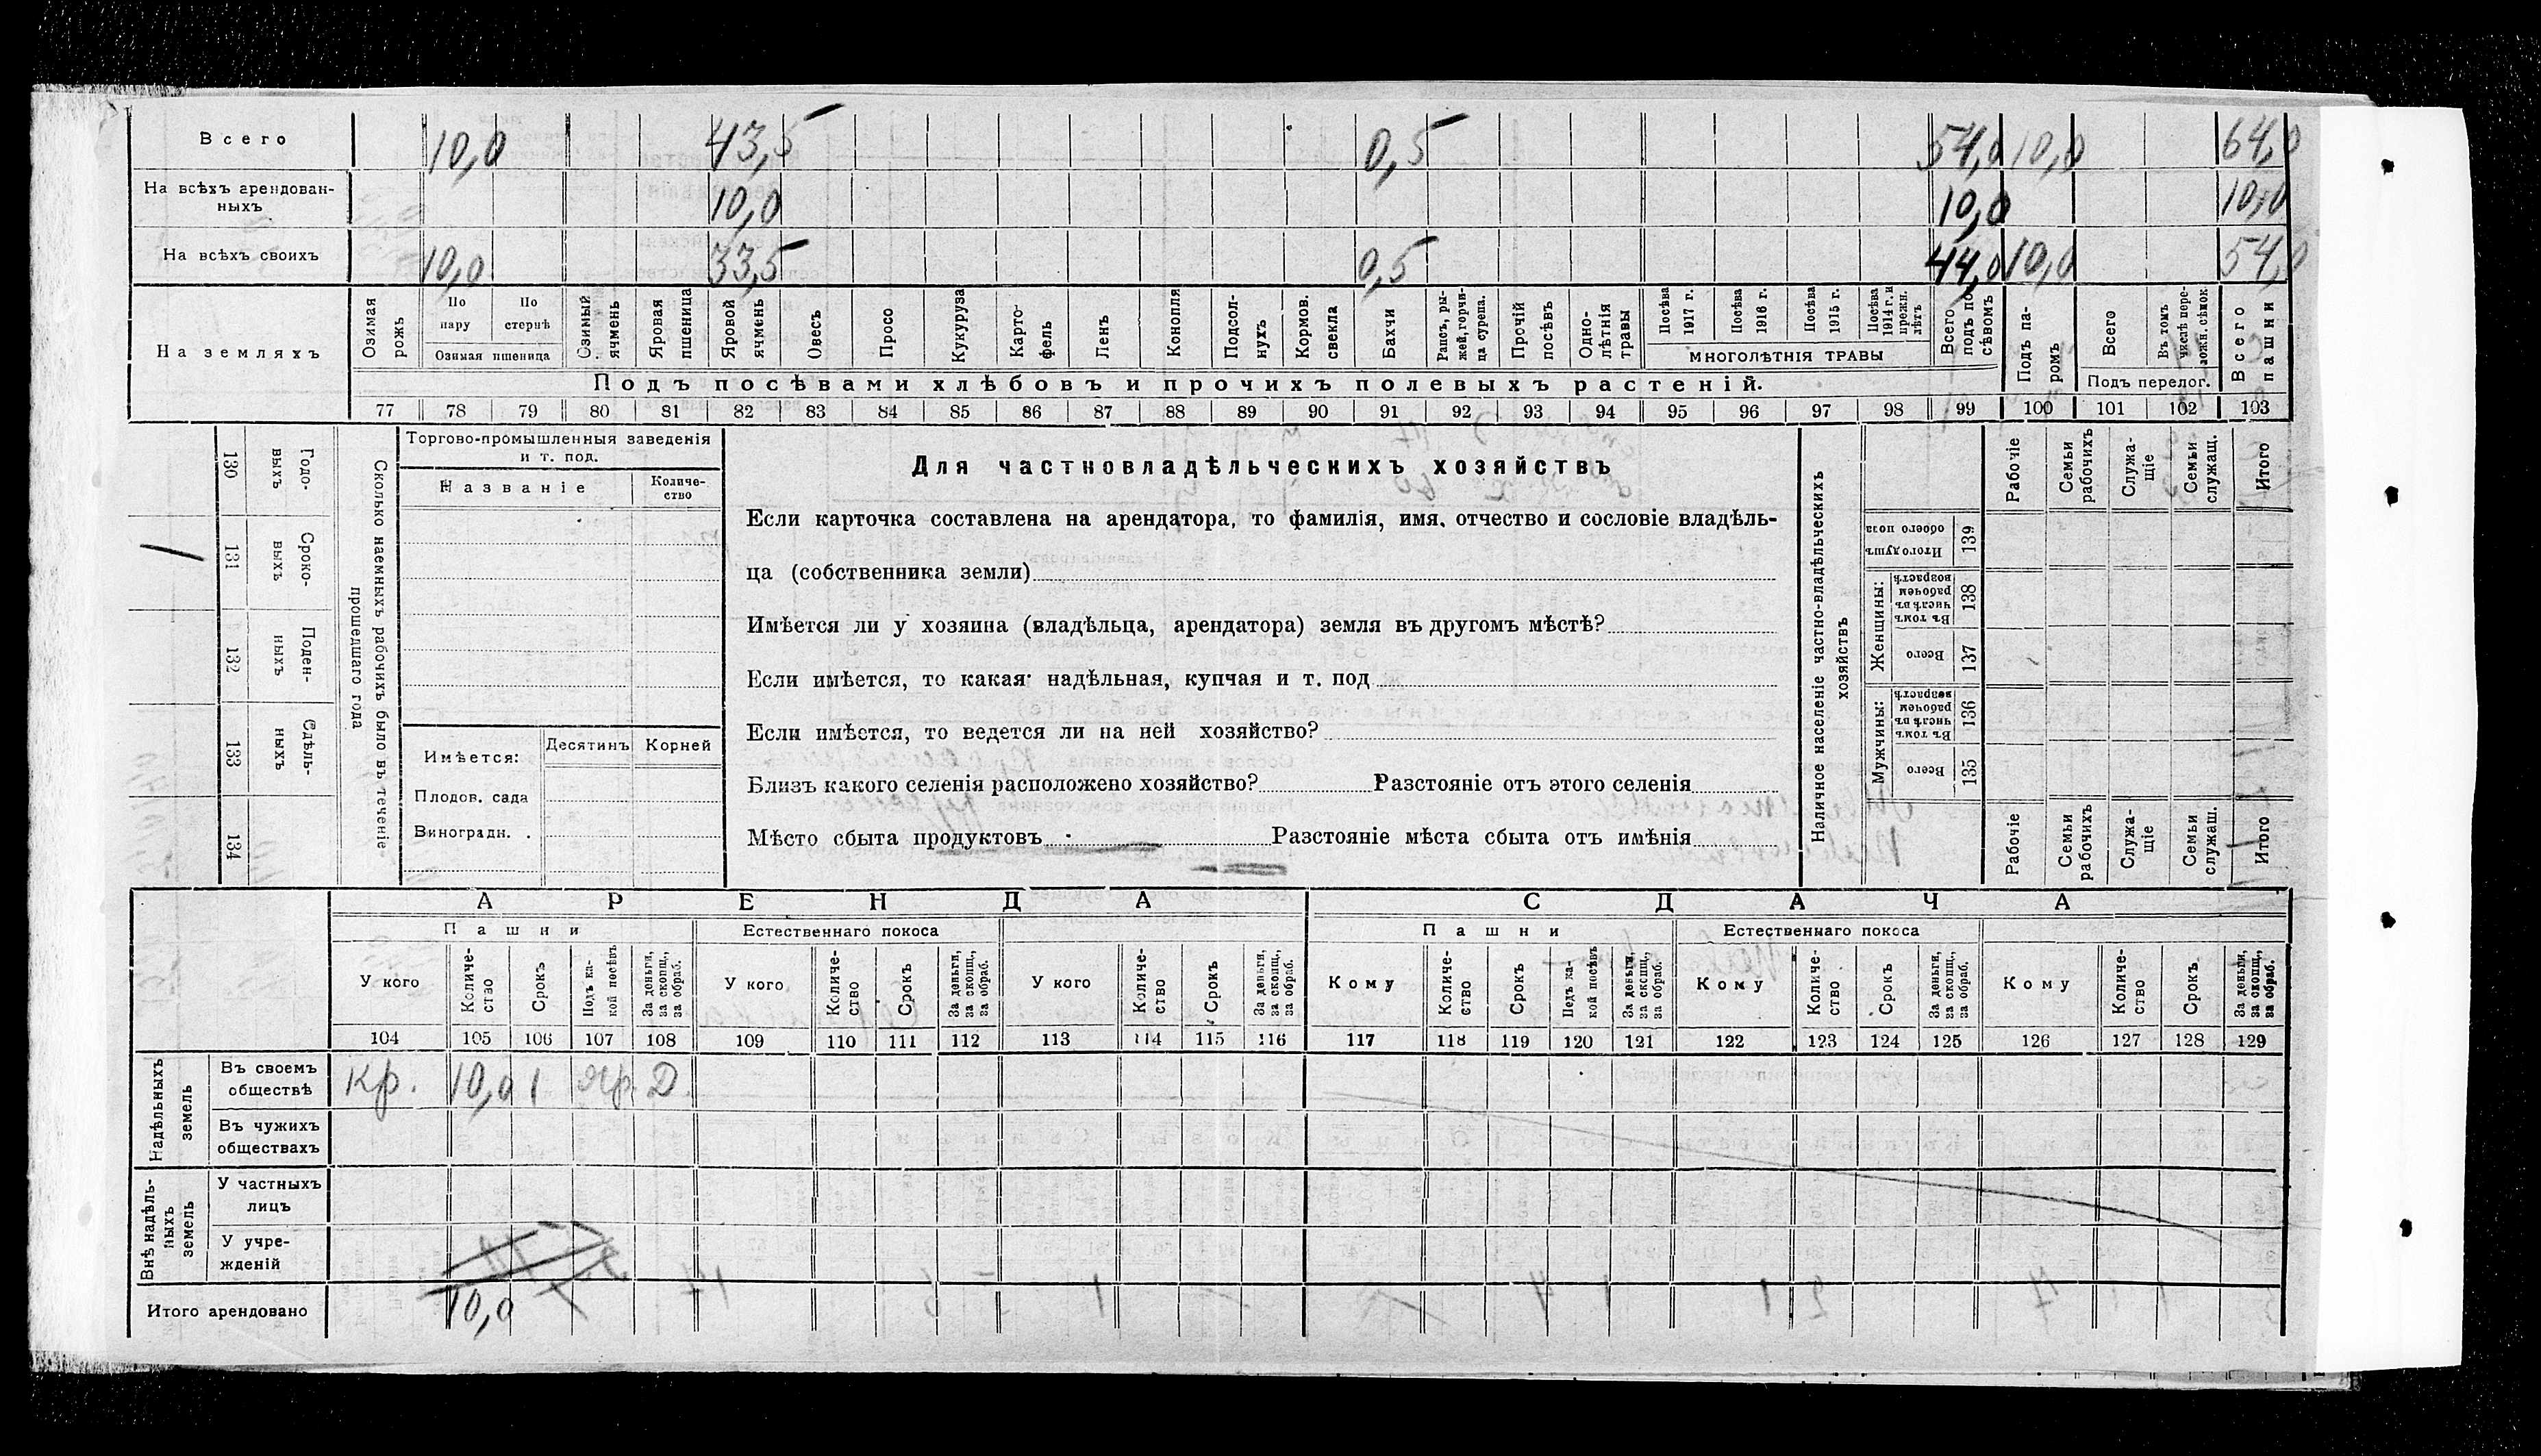 Всего 10,0 43,5 0,5 54,0 10,0 64,0
На всѣхъ арендован-
ныхъ 10,0 10,0 10,0
На всѣхъ своихъ 10,0 33,5 0,5 44,0 10,0 54,0
На земляхъ
Озимая рожь
По пару
По стернѣ
Озимая пшеница
Озимый ячмень
Яровая пшеница
Яровой ячмень
Овесъ
Просо
Кукуруза
Карто-
фель
Ленъ
Конопля
Подсол-
нухъ
Кормов. свекла
Бахчи
Рапсъ, ры-
жей, горчи-
ца суреша.
Прочій посѣвъ
Одно-
лѣтнія травы
Посѣва 1917 г.
Посѣва 1916 г.
Посѣва 1915 г.
Посѣва 1914 г. и прежн. лѣтъ
МНОГОЛѢТНІЯ ТРАВЫ
Всего подъ по-
сѣвомъ
Подъ па-
ромъ
Всего
Въ томъ числѣ пере-
ложн. сѣнок.
Подъ перелог.
Всего пашни
Подъ посѣвами хлѣбовъ и прочихъ полевыхъ растеній.
77 78 79 80 81 82 83 84 85 86 87 88 89 90 91 92 93 94 95 96 97 98 99 100 101 102 103
130 Годо-
выхъ
131 Сроко-
выхъ
132 Поден-
ныхъ
133 Сдѣль-
ныхъ
134
Сколько наемныхъ рабочихъ было въ теченіе
прошедшаго года
Торгово-промышленныя заведенія
и т. под.
Названіе
Количе-
ство
Имѣется: Десятинъ Корней
Плодов. сада
Виноградн.
Для частновладѣльческихъ хозяйствъ
Если карточка составлена на арендатора, то фамилія, имя, отчество и сословіе владѣль-
ца (собственника земли)
Имѣется ли у хозяина (владѣльца, арендатора) земля въ другомъ мѣстѣ?
Если имѣется, то какая: надѣльная, купчая и т. под
Если имѣется, то ведется ли на ней хозяйство?
Близъ какого селенія расположено хозяйство? Разстояніе отъ этого селенія
Мѣсто сбыта продуктовъ Разстояніе мѣста сбыта отъ имѣнія
Наличное населеніе частно-владѣльческихъ
хозяйствъ
Рабочіе
Семьи рабочихъ
Служа-
щіе
Семьи служащ.
Итого
Итого душъ обоего пола 139
Женщины:
Въ томъ числѣ въ рабочем возрастѣ 138
Всего 137
Мужчины:
Въ томъ числѣ въ рабочем возрастѣ 136
Всего 135
Рабочіе
Семьи рабочихъ
Служа-
щіе
Семьи служащ.
Итого
АРЕНДА СДАЧА
Пашни Естественнаго покоса Пашни Естественнаго покоса
У кого
Количе-
ство
Срокъ
Подъ ка-
кой посѣвъ
За деньги, за скопщ., за обраб.
У кого
Количе-
ство
Срокъ
За деньги, за скопщ., за обраб.
У кого
Количе-
ство
Срокъ
За деньги, за скопщ., за обраб.
Кому
Количе-
ство
Срокъ
Подъ ка-
кой посѣвъ
За деньги, за скопщ., за обраб.
Кому
Количе-
ство
Срокъ
За деньги, за скопщ., за обраб.
Кому
Количе-
ство
Срокъ
За деньги, за скопщ., за обраб.
104 105 106 107 108 109 110 111 112 113 114 115 116 117 118 119 120 121 122 123 124 125 126 127 128 129
Надѣльныхъ земель
Въ своемъ
обществѣ Кр. 10,0 1 Яр. Д.
Въ чужихъ
обществахъ
Внѣ надѣль-
ныхъ земель
У частныхъ
лицъ
У учре-
жденій
Итого арендовано 10,0